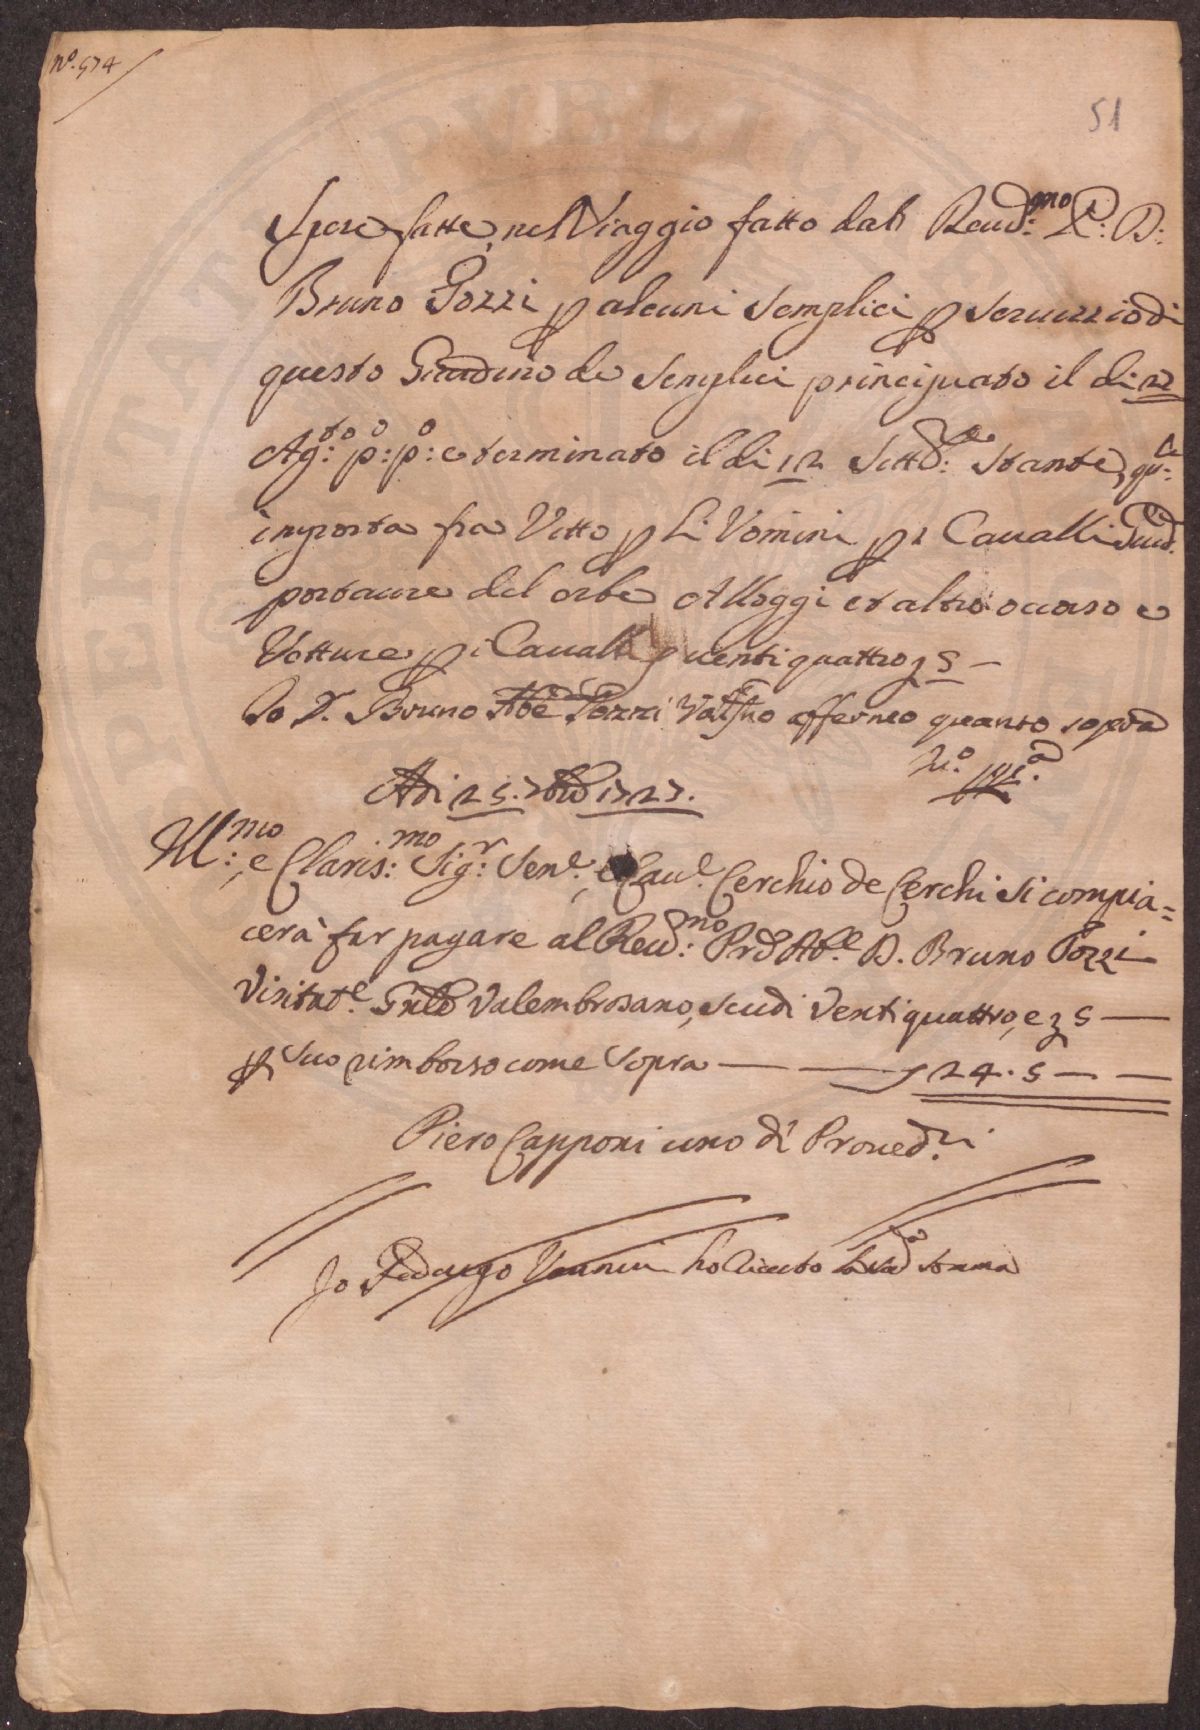 nº. 574
51
Spese fatte, nel Viaggio fatto dal Reud:mo P: D:
Bruno Tozzi p alcuni semplici p seruizzio di
questo Giardino de semplici principiato il di 22
Ag:to p:o p:o e terminato il di 12 Sett:e stante, qu:le
importa fra Vitto p li Vomini p 2 Caualli
portature del erbe Alloggi et altro occorso e
Vetture p i Caualli ventiquattro 5 —
Io D. Bruno Abe Tozzi affermo quanto sopra
Mº. ppª.
Adi 25. 7bre 1727.
Ill:mo, e Claris:mo Sig:r Sen:e, e Cau:e Cerchio de Cerchi si compia=
cerà far pagare al Reud:mo Prd Ab:e D. Bruno Tozzi
Visitat:e Gnle Valembrosano, scudi Ventiquattro, e 5 —
p suo rimborso come sopra — — — 24. 5 — —
Piero Capponi uno di Proued:ri
Io Vannini ho riceuto somma